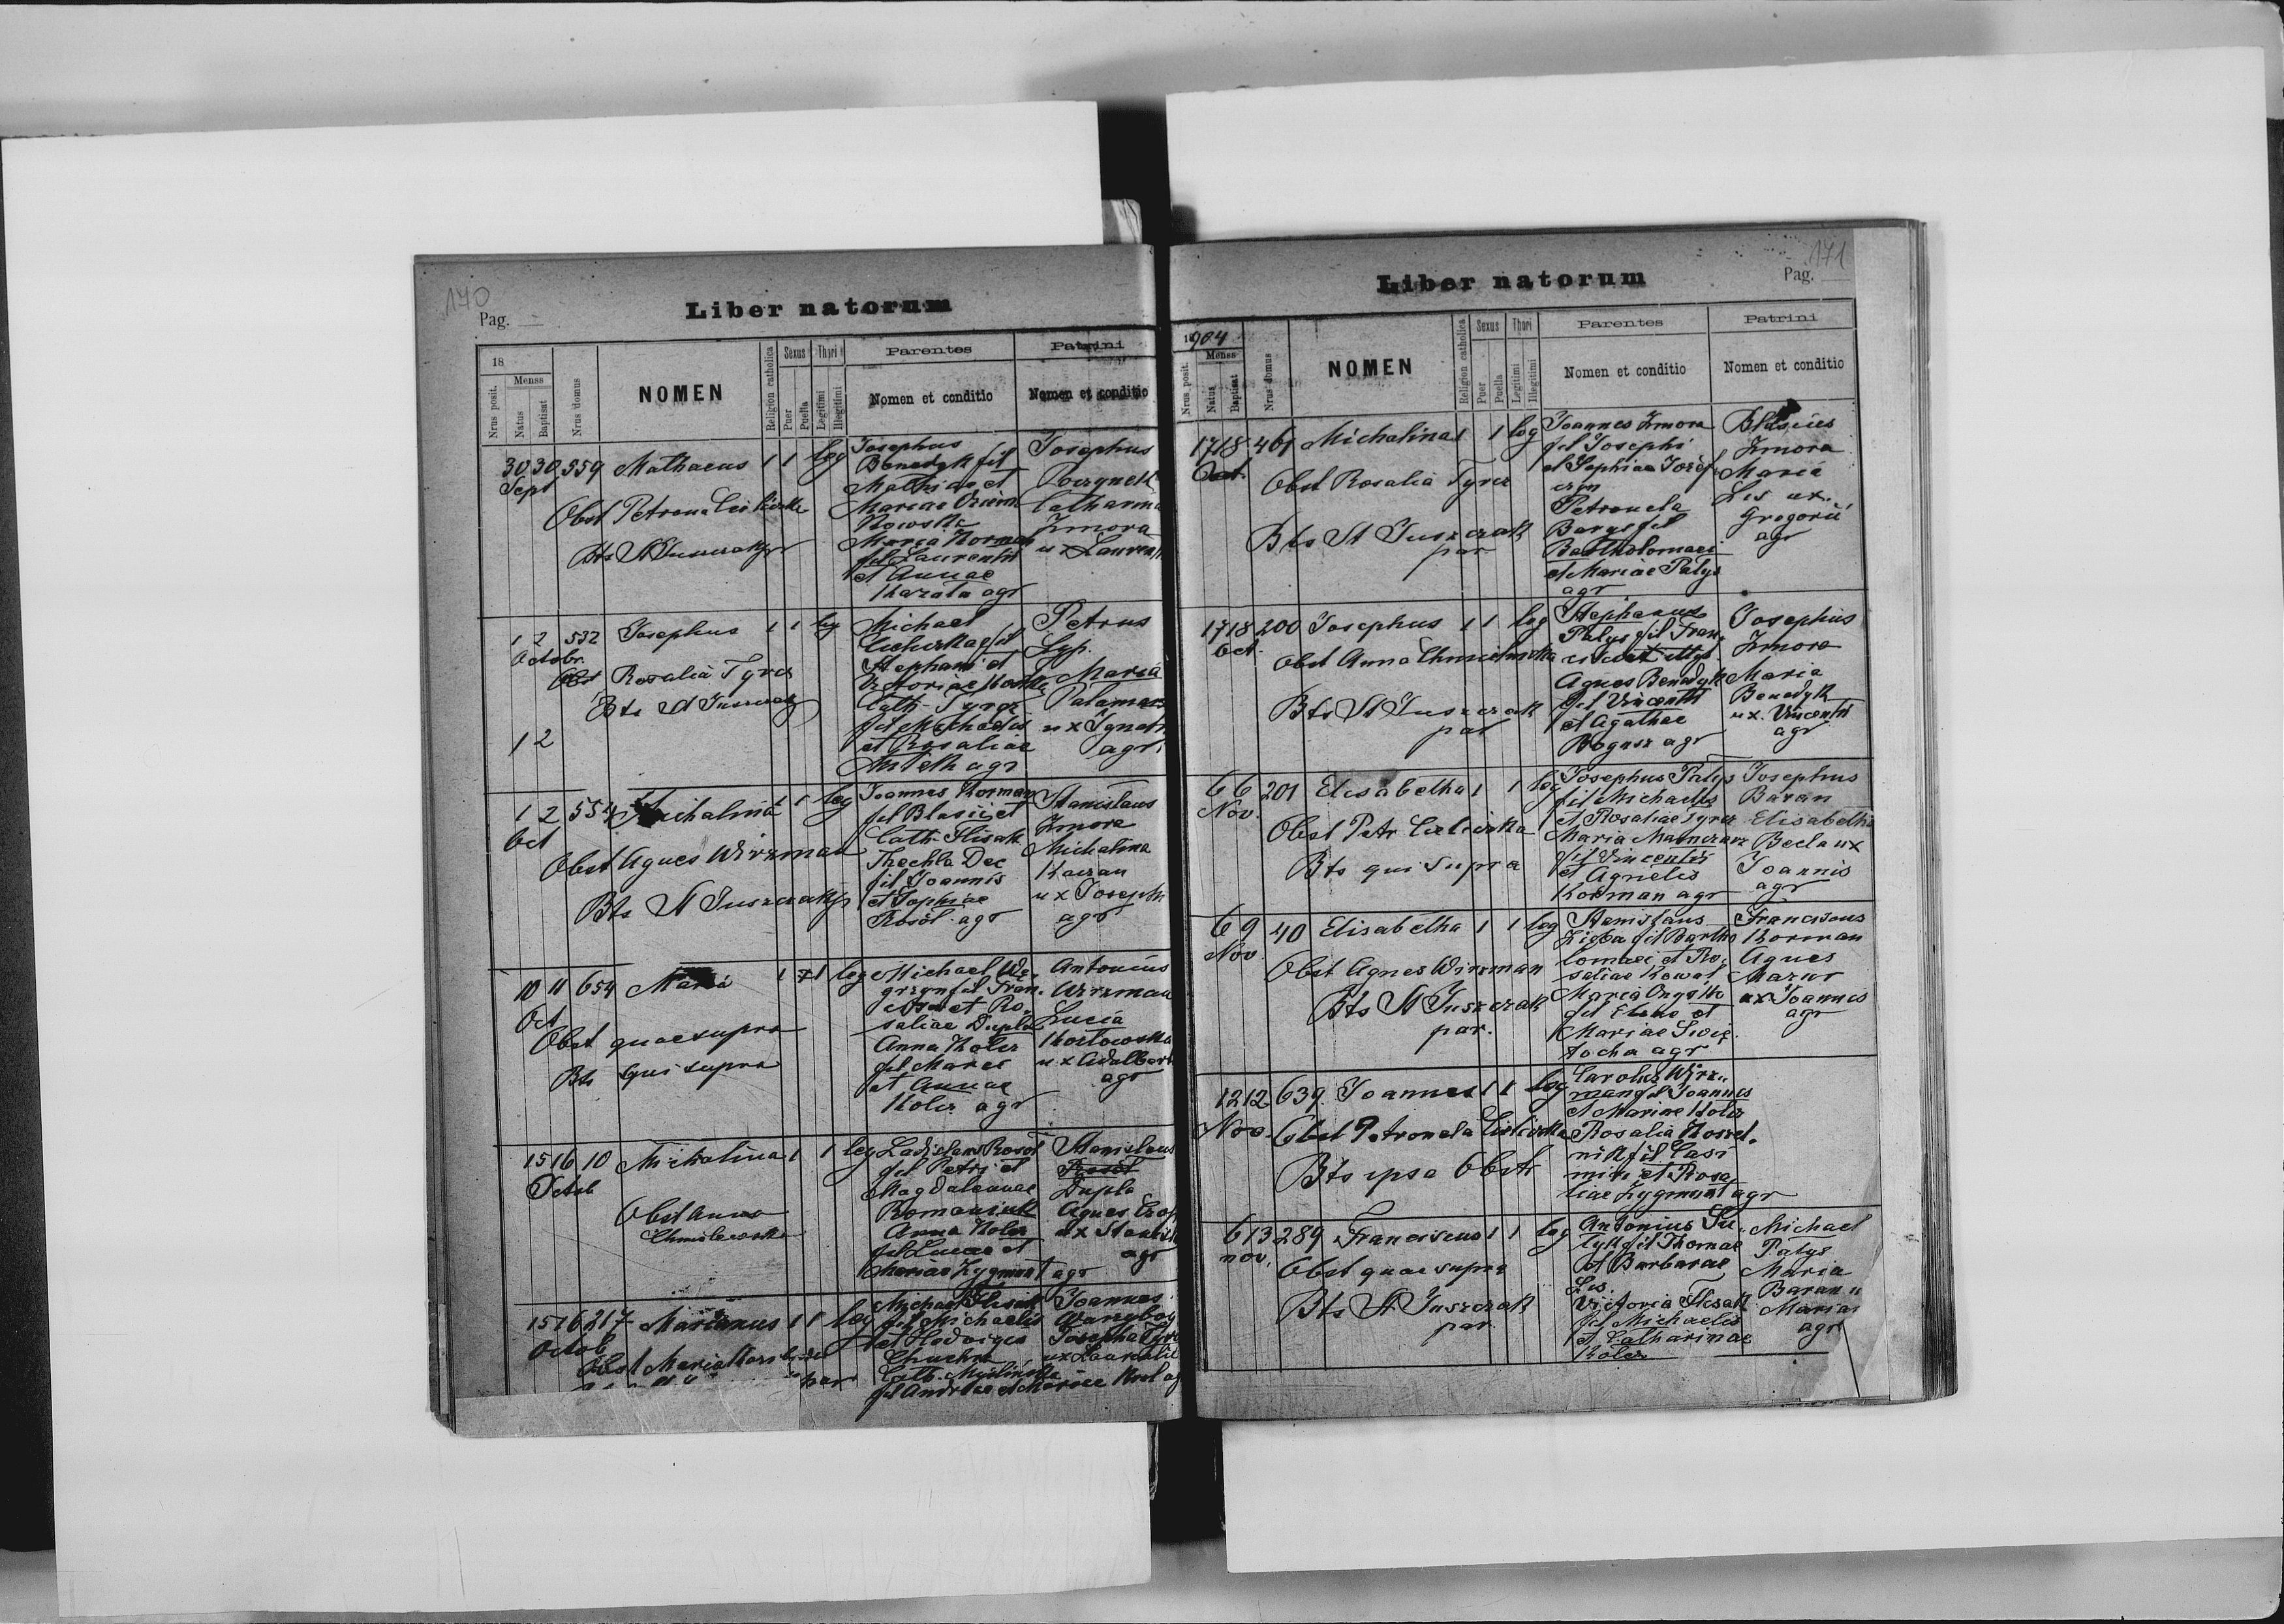 170
Pag.
Liber natorum
18
Nrus posit.
Menss
Natus
Baptisat
Nrus domus
NOMEN
Religion catholica
Sexus
Puer
Puella
Thori
Legitimi
Illegitimi
Parentes
Nomen et conditio
Patrini
Nomen et conditio
30 30 359 Mathaeus 1 1 leg
Sept
Obst Petronela
Bts St Juszczak
Josephus
Benedyk fil
Mathiae et
Mariae
Maria Korman
fil Laurentii
et Annae
Karata agr
Josephus
Catharina
Zmora
ux Laurentii
1 2 532 Josephus 1 1 leg
Octobr.
Obst Rosalia Tyrcz
Bts St Juszczak
1 2
Michael
fil
Stephani et
Victoriae
Cath Tyrcz
fil Michaelis
et Rosaliae
Antek agr
Petrus
Maria
ux Ignatii
agr.
1 2 554 Michalina 1 1 leg
Oct
Obst Agnes Wirzman
Bts St Juszczak
Joannes Korman
fil Blasii et
Cath Flisak
Thechla Dec
fil Joannis
et Sophiae
Rosół agr
Stanislaus
Zmora
Michalina
ux Josephi
agr
10 11 654 Maria 1 1 leg
Oct
Obst quae supra
Bts qui supra
Michael Wę-
grzyn fil Fran-
cisci et Ro-
saliae Dupla
Anna Kolcz
fil Marci
et Annae
Kolcz agr
Antonius
Wirzman
Lucia
Kozłowska
ux Adalberti
agr
15 16 10 Michalina 1 1 leg
Octob
Obst Anna
Chmielewska
Ladislaus Rosół
fil Petri et
Magdalenae
Romaniuk
Anna Kolcz
fil Lucae et
Mariae Zygmunt agr
Stanislaus
Rosół
Dupla
Agnes
ux Stanislai
agr
15 16 217 Marianus 1 1 leg
Octob
Obst Maria
par
Michael Flisak
fil Michaelis
et Hedvigis
Cath.
fil Andreae et Mariae Król agr
Joannes
Josepha Tyrcz
ux Laurentii
171
Pag.
Liber natorum
1904
Nrus posit.
Menss
Natus
Baptisat
Nrus domus
NOMEN
Religion catholica
Sexus
Puer
Puella
Thori
Legitimi
Illegitimi
Parentes
Nomen et conditio
Patrini
Nomen et conditio
17 18 461 Michalina 1 1 leg
Oct.
Obst Rosalia Tyrcz
Bts St Juszczak
par
Joannes Zmora
fil Josephi
et Sophiae
Petronela
fil
Bartholomaei
et Mariae Patys
agr
Blasius
Zmora
Maria
Lis ux.
Gregorii
agr
17 18 200 Josephus 1 1 leg
Oct.
Obst Anna Chmielewska
Bts St Juszczak
par
Stephanus
Patys fil Fran-
cisci et
Agnes Benedyk
fil Vincentii
et Agathae
Bogusz agr
Josephus
Zmora
Maria
Benedyk
ux. Vincentii
agr
6 6 201 Elisabetha 1 1 leg
Nov.
Obst Petr
Bts qui supra
Josephus Patys
fil Michaelis
et Rosaliae Tyrcz
Maria
fil Vincentii
et Agnetis
Korman agr
Josephus
Baran
Elisabetha
Becla ux
Joannis
agr
6 9 40 Elisabetha 1 1 leg
Nov
Obst Agnes Wirzman
Bts St Juszczak
par.
Stanislaus
Zięba fil Bartho
lomaei et Ro-
saliae Kowal
Maria
fil et
Mariae Świę-
tocha agr
Franciscus
Korman
Agnes
Mazur
ux Joannis
agr
12 12 639 Joannes 1 1 leg
Nov. Obst Petronela
Bts ipsa Obst
Carolus Wirz-
man fil Joannis
et Mariae Kolcz
Rosalia
fil Casi
miri et Rosa
liae Zygmunt agr
6 13 289 Franciscus 1 1 leg
nov.
Obst quae supra
Bts St Juszczak
par.
Antonius
fil Thomae
et Barbarae
Lis.
Victoria Flisak
fil Michaelis
et Catharinae
Kolcz
Michael
Patys
Maria
Baran
agr